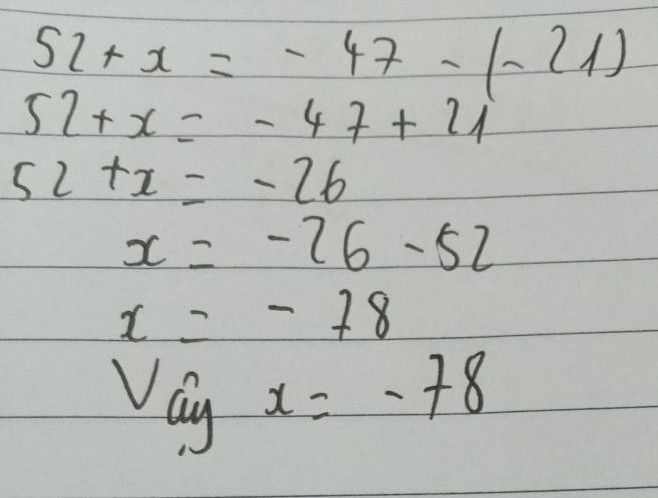 52 + x = - 47 - (- 21)
52 + x = - 47 + 21
52 + x = - 26
x = - 26 - 52
x = - 78
Vậy x = - 78